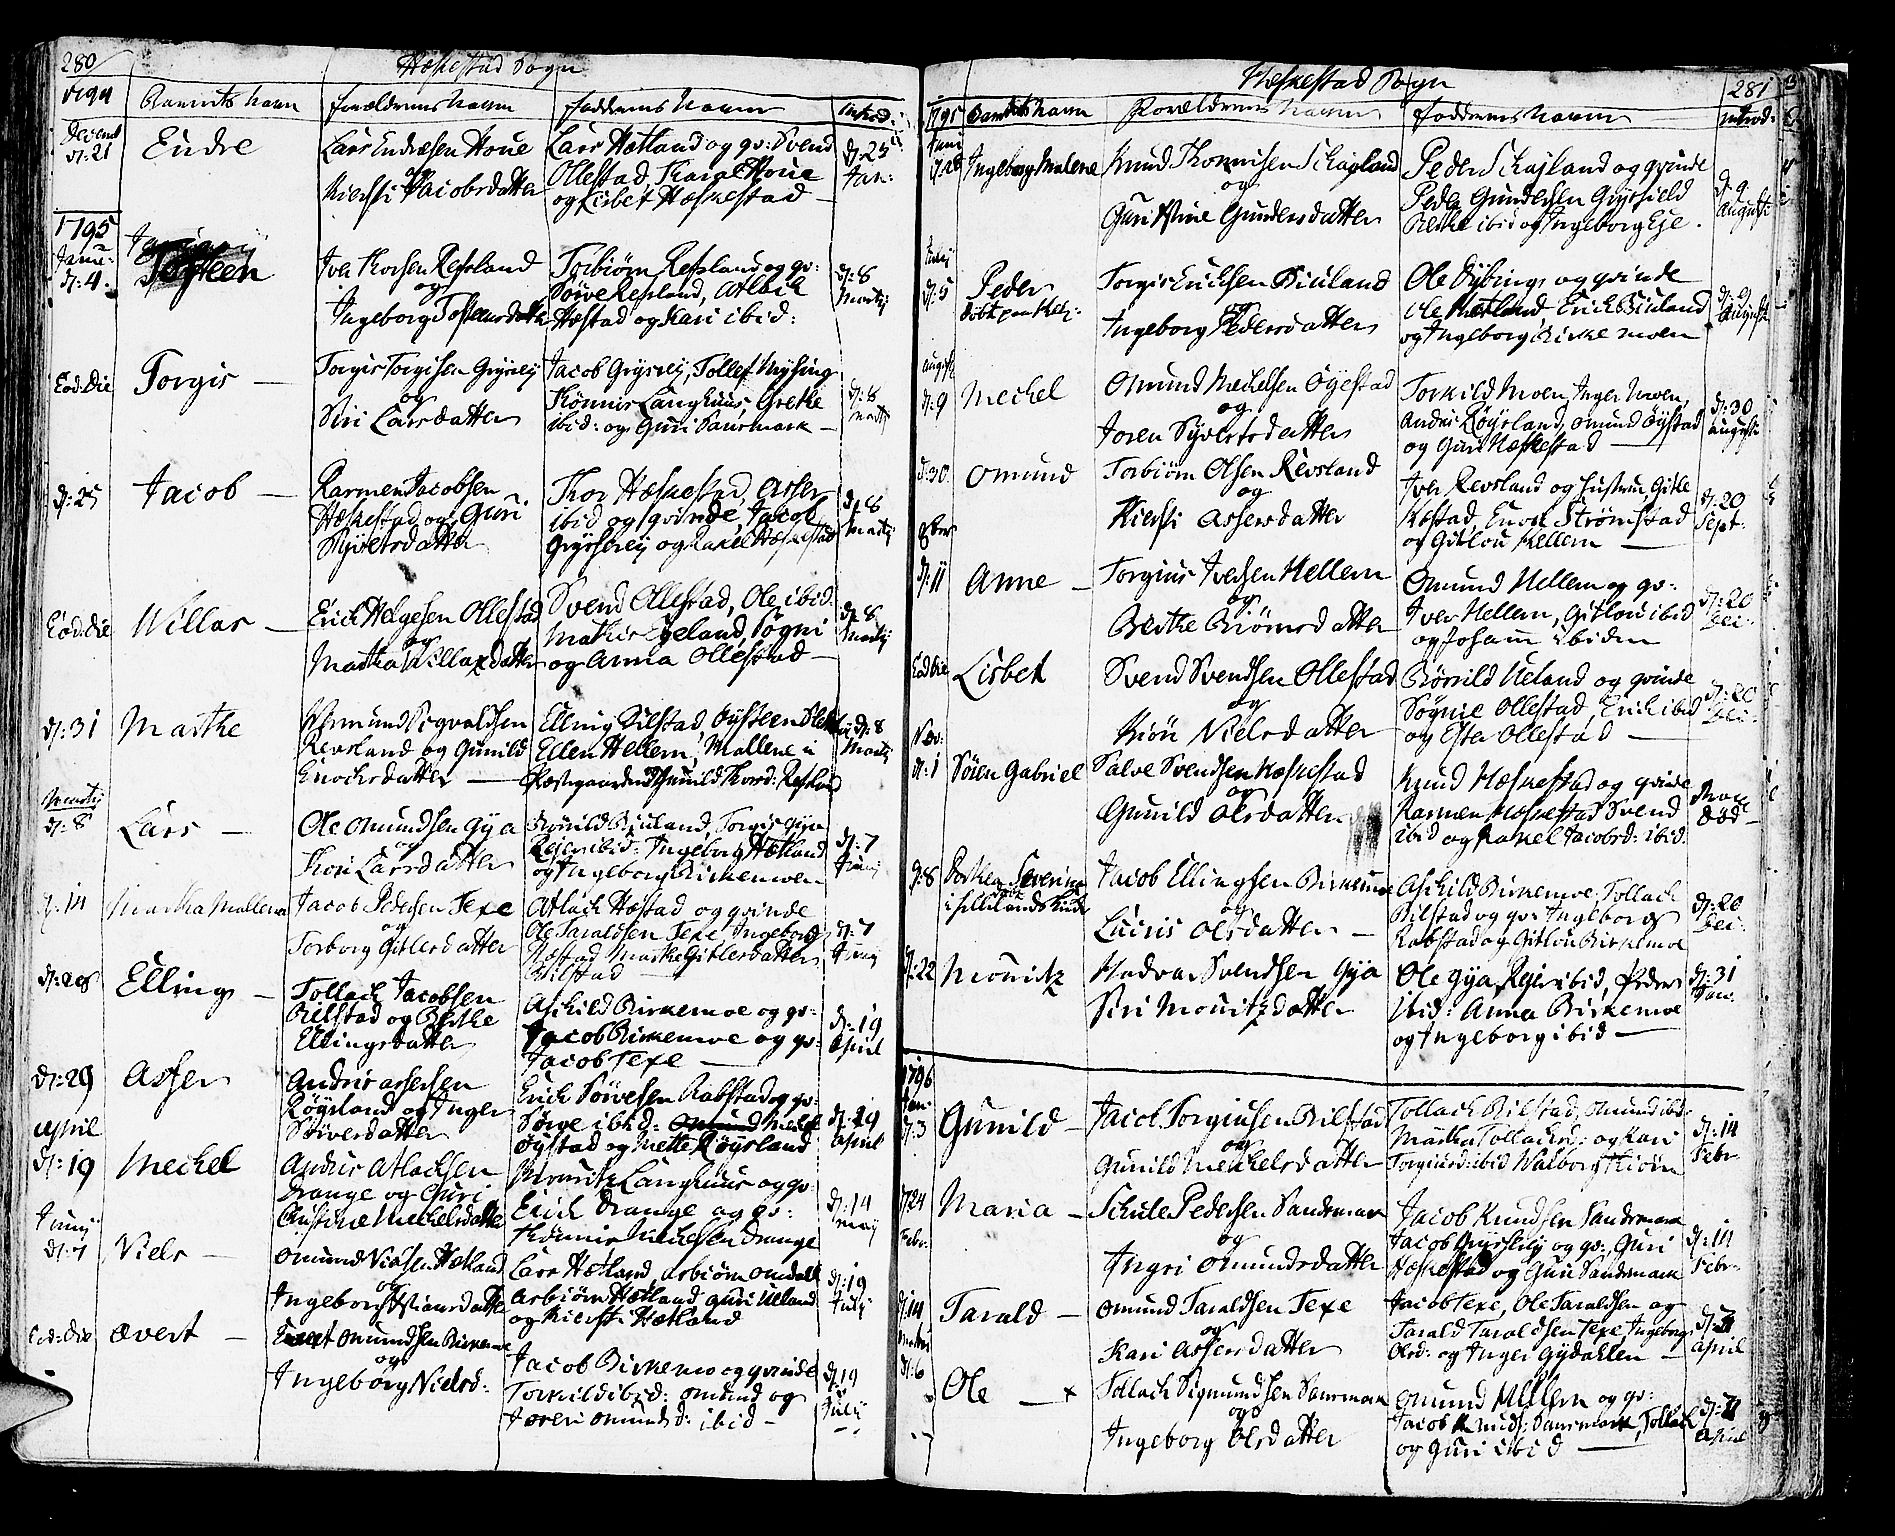 280
Heskestad Sogn
1794
Barnets Navn
Forældrenes Navne
Faddernes Navne
Introd:
Decemb
d: 21
Endre
Lars Endresen Houe
og
Kiersti Jacobsdatter
Lars Hetland og qv: Svend
Ollestad, Houe
og Lisbet Heskestad —
d: 25
Jan:
1795
Janu:
d: 4.
Iver Thorsen Refsland
og
Ingeborg Tosteensdatter
Torbiørn Refsland og qv:
Refsland, Atlak
Hæstad og Kari ibid:
d: 8
Martij
Eod: Die
Torgis —
Torgis Torgisen Grysrij
og
Siri Larsdatter
Jacob Grysriej, Tollef Mysing
Thønnis Langhuus, Grethe
ibid: og Guri Sansmark —
d: 8
Martij
d: 25
Jacob —
Rasmen Jacobsen
Heskestad og Guri
Syvertsdatter
Thor Heskestad, Asser
ibid og qvinde, Jacob
Grysriej og Rakel Heskestad
d: 8
Martij
Eod: die
Willas —
Erich Helgesen Ollestad
og
Martha Willaxdatter
Svend Ollestad, Ole ibid:
Mathis Egeland, Søgni
og Anna Ollestad —
d: 8
Martij
d: 31
Marthe
Sigvaldsen
Revsland og Gunild
Enochsdatter —
Elling Bilstad, Øysteen
Ellen Hellern, Mallene i
Præstegaarden Gunild Thord: Refsland
d: 8
Martij
Martij
d: 8
Lars —
Ole Omundsen Gya
og
Thori Larsdatter
Børuild Biuland, Torgis Gya
Reier ibid: Ingeborg Hetland
og Ingeborg Birkemoen
d: 7
Junij
d: 14
Martha Mallena
Jacob Pedersen Texe
og
Torborg Gitlesdatter
Atlach Hæstad og qvinde
Ole Taraldsen Texe, Ingeborg
Hæstad Marthe Gitlesdatter
Bilstad —
d: 7
Junij
d: 28
Elling —
Tollach Jacobsen
Bilstad og Berthe
Ellingsdatter
Aschild Birkemoe og qv:
Jacob Birkemoe og qv:
Jacob Texe —
d: 19
April
d: 29
Asser
Andris Assersen
Røysland og Inger
Siøversdatter
Erich Siøvesen Rabstad og qv:
Sørge ibid: Omund
Øystad og Mette Røysland
d: 29
April
April
d: 19
Mechel
Andris Atlachsen
Drange og Guri
Christine Mechelsdatter
Mouritz Langhuus og qv:
Erich Drange og qv:
Thønnis Michelsen Drange
d: 14
Maij
Junij
d: 7
Niels —
Omund Nielsen Hetland
og
Ingeborg
Lars Hetland, Asbiørn Omdall
Asbiørn Hetland Guri Ueland
og Kiersti Hetland
d: 19
Julij
Eod: Die
Ævert —
Omundsen Birkemoe
og
Ingeborg Nielsd:
Jacob Birkemo og qvinde
Torkild ibid: Omund og
Joren Omunds: ibid —
d: 19
Julij
Heskestad Sogn
281
1795
Barnets Navn
Forældrenes Navne
Faddernes Navne
Introd:
Juni
d: 28
Ingeborg Malene
Knud Thonnisen Skagland
og
Guri Stine Gundersdatter
Peder Skagland og qvinde
Peder Gundersen Grysfield
Berthe ibid og Ingeborg Eye.
d: 9
Augusti
Julij
d: 5
Peder
døbt paa Helj:
Torgis Erichsen Biuland
og
Ingeborg Pedersdatter
Ole Dybing og qvinde
Ole Hetland, Erich Biuland
og Ingeborg Birkemoen
d: 9
Augusti
August
d: 9
Mechel
Omund Mechelsen Øyestad
og
Joren Syvertsdatter
Torkild Moen, Inger Moen,
Andris Røysland, Omund Øystad
og Guri Heskestad —
d: 30
Augusti
d: 30
Omund
Torbiørn Olsen Revsland
og
Kiersti Assersdatter
Iver Revsland og hustru, Gitle
Enok Strømstad
og Gitlou Hellern —
d: 20
Sept:
8br
d: 11
Anne —
Torgius Iversen Hellern
og
Berthe Biørnsdatter
Omund Hellern og qv:
Iver Hellern, Gitlou ibid
og Johann ibidem
d: 20
Dec:
Eod Die
Lisbet
Svend Svendsen Ollestad
og
Nielsdatter
Børrild Ueland og qvinde
Søgnie Ollestad, Erich ibid
og Ester Ollestad —
d: 20
Dec:
Nov:
d: 1
Søren Gabriel
Salve Svendsen Heskestad
og
Gunild Olsdatter
Knud Heskestad og qvinde
Rasmen Heskestad Svend
ibid og Rakel Jacobsd: ibid.
død —
d: 8
Dorthea Severine
Jacob Ellingsen Birkemoe
og
Lucris Olsdatter —
Aschild Birkemoe, Tollach
Bilstad og qv: Ingeborg
Rabstad og Gitlou Birkemoe
d: 20
Dec:
d: 22
Mouritz
Hadvar Svendsen Gya
Siri Mouritzdatter
Ole Gya, Reier ibid, Peder
ibid: Anna Birkemoe
og Ingeborg ibid —
d: 31
Jan:
1796
Jan:
d: 3
Gunild —
Jacob Torgiusen Bilstad
og
Gunild Mechelsdatter
Tollach Bilstad, Omund ibd:
Martha Tollachsd: og Kari
Torgiusd: ibid Walborg
d: 14
Febr
d 24
Maria —
Schule Pedersen Sandsmark
og
Ingri Omundsdatter
Jacob Knudsen Sandsmark
Jacob Grysriej og qv: Guri
Heskestad og Guri Sandsmark
d: 14
Febr
Febr:
d: 14
Tarald —
Omund Taraldsen Texe
og
Kari Assersdatter
Jacob Texe, Ole Taraldsen og
Tarald Taraldsen Texe, Ingeborg
Olsd: og Inger Gydahlen —
April
Martij
d: 6
Ole — x
Tollach Sigmundsen Sansmark
og
Ingeborg Olsdatter
Omund Mellem og qv:
Jacob Knuds: Sansmark, Tollach
og Guri ibid —
April